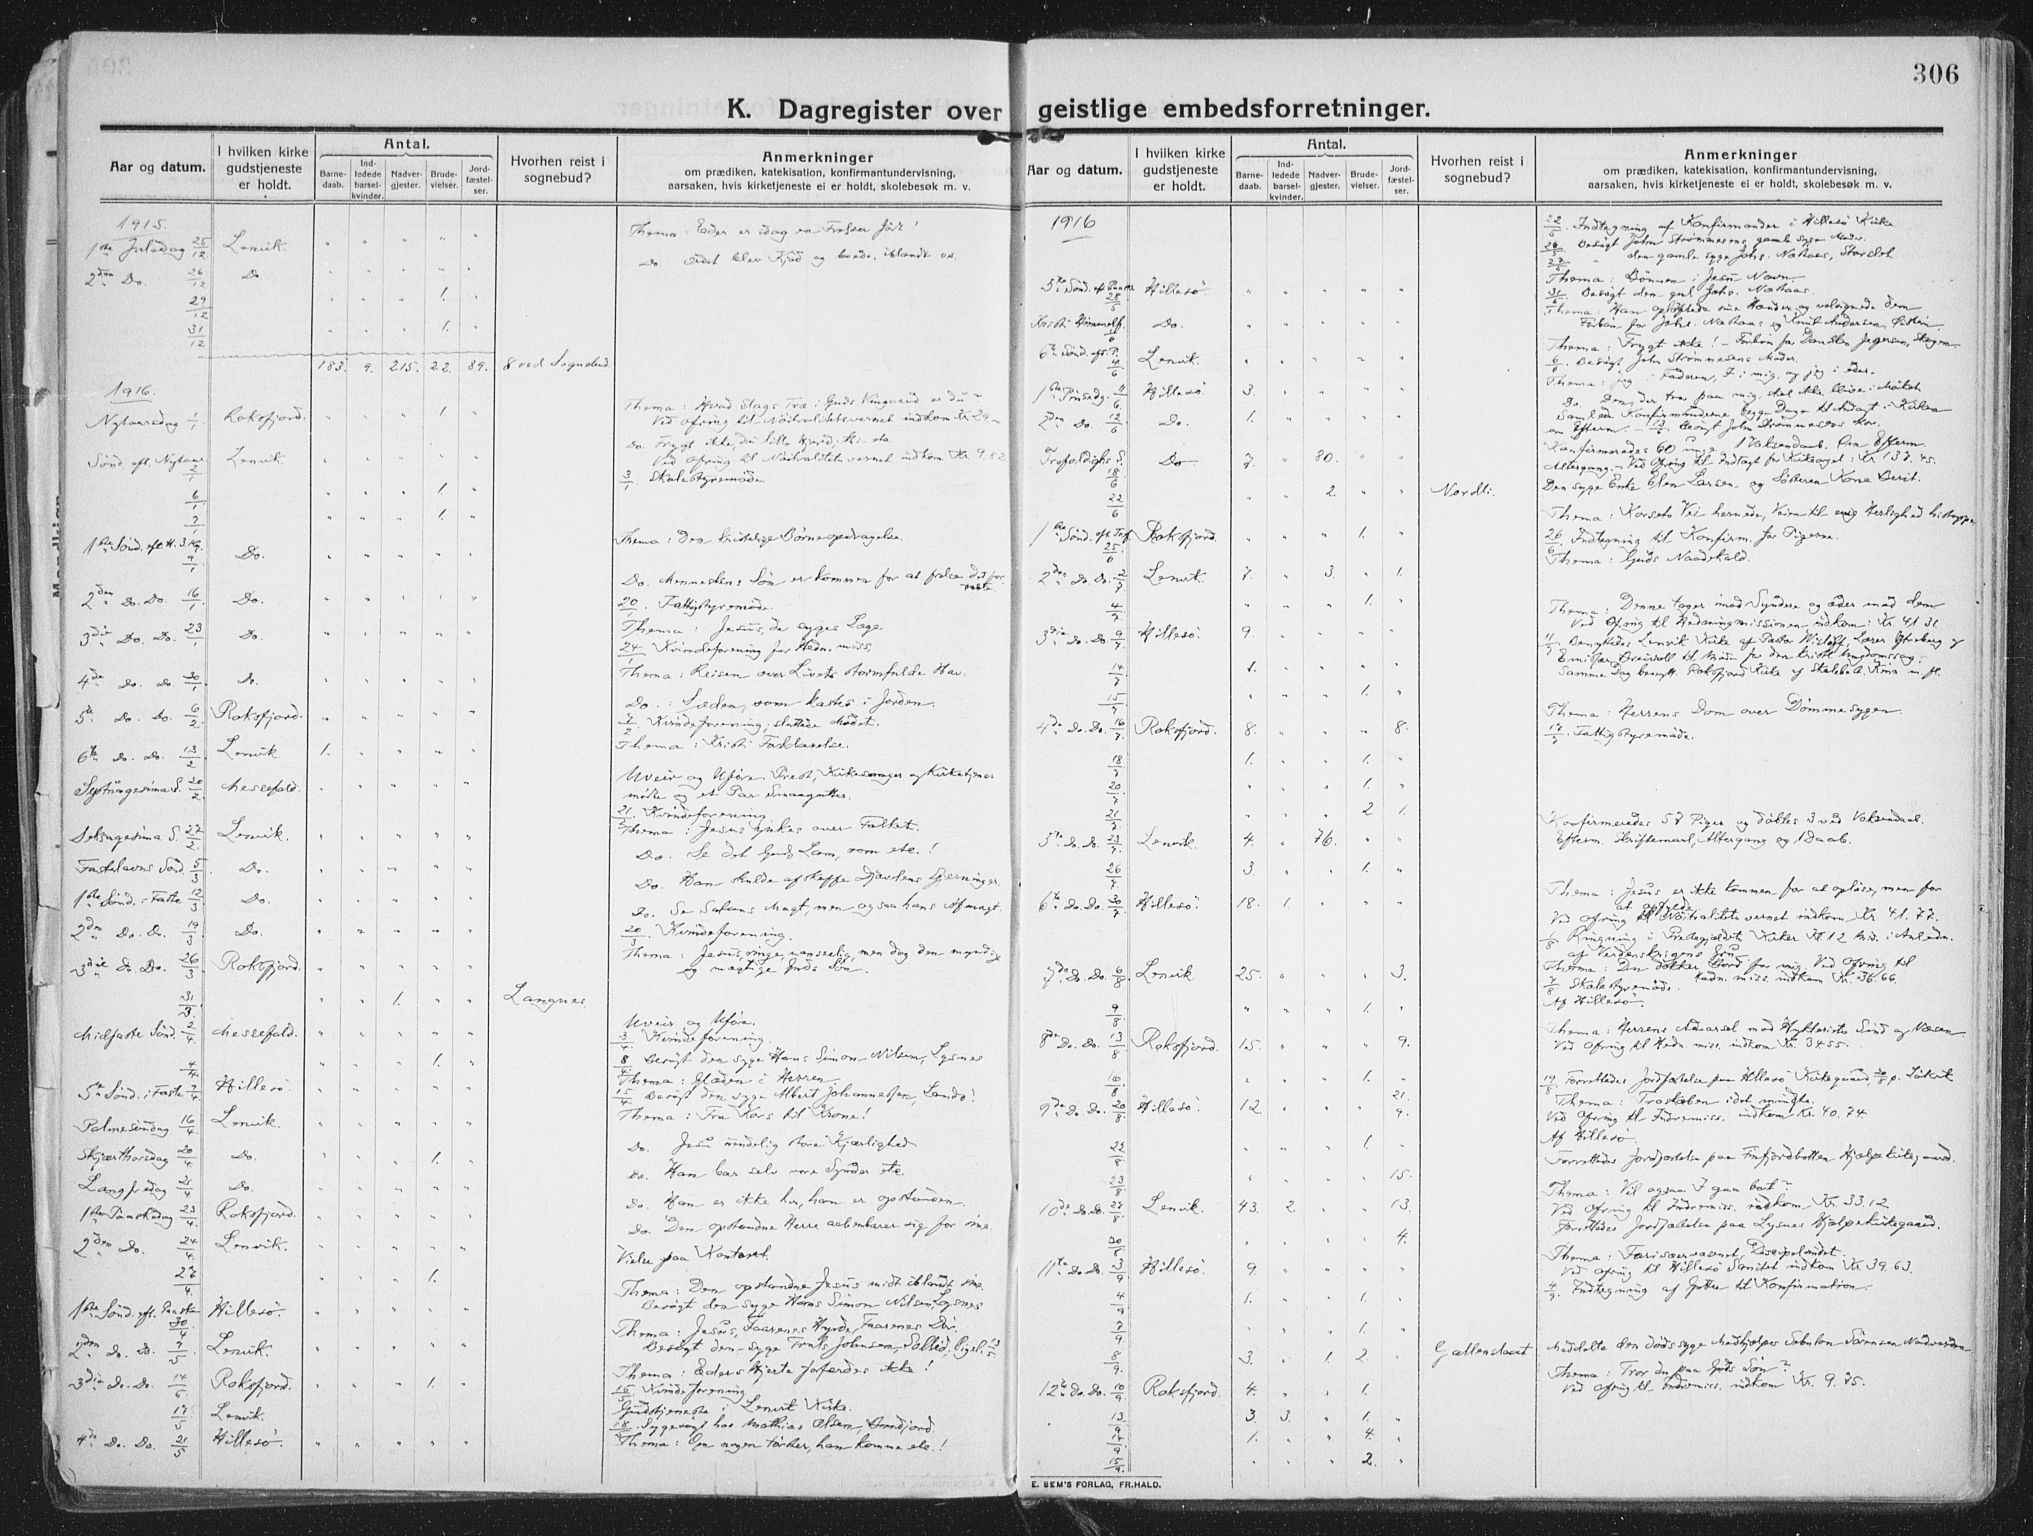 306
K. Dagregister over geistlige embedsforretninger.
Aar og datum.
I hvilken kirke gudstjeneste er holdt.
Antal.
Barnedaab.
Indledede barselkvinder.
Nadvergjester.
Brudevielser.
Jordfæstelser.
Hvorhen reist i sognebud?
Anmerkninger
om prædiken, katekisation, konfirmantundervisning,
aarsaken, hvis kirketjeneste ei er holdt, skolebesøk m. v.
1915.
1ste Juledag 25/12 Lenvik. " " " " " Thema: Eder er idag en Frelser født!
2den Do. 26/12 Do " " " " " Do Ordet blev Kjød og boede iblandt os.
29/12 " " " 1. "
31/12 " " " 1. "
183. 9. 215. 22. 89. 8 ved Sognebud.
1916.
Nytaarsdag 1/1 Roksfjord. " " " 1. " Thema: Hvad Slags Træ i Guds Vingaard er du?
Ved Ofring til Nøitralitetsvernet indkom Kr 29.–
Do. Frygt ikke, du lille Hjord; thi etc.
Sønd. eft. Nytaar 2/1 Lenvik. Ved Ofring til Nøitralitetsvernet indkom Kr. 9.82
3/1 Skolestyremøde.
6/1 " " " 1. "
7/1 " " " 1. "
1ste Sønd. eft. H. 3 Kg. 9/1 Do. " " " " " Thema: Den kristelige Børneopdragelse.
Do. Menneskens Søn er kommen for at frelse det for-
tabte.
2den Do. Do. 16/1 Do. " " " " " 20/1. Fattigstyremøde.
3die Do. Do. 23/1 Do. " " " " " Thema: Jesus, de syges Læge.
24/1 Kvindeforening for Hedn. miss.
4de Do. Do. 30/1 Do. " " " " " Thema: Reisen over Livets stormfulde Hav.
5te Do. Do. 6/2 Roksfjord. " " " " " Do.: Sæden, som kastes i Jorden.
7/2 Kvindeforening; sluttede Mødet.
6te Do. Do. 13/2 Lenvik 1. " " " " Thema: Kristi Forklarelse.
Septuagesima S. 20/2 Messefald. " " " " " Uveir og Uføre. Prest, Kirkesanger og Kirketjener
mødte og et Par Smaagutter.
21/2. Kvindeforening.
Seksagesima S. 27/2 Lenvik. " " " " " Thema: Jesus ynkes over Folket.
Fastelavns Sønd. 5/3 Do. " " " " " Do. Se det Guds Lam, som etc.!
1ste Sønd. i Faste 12/3 Do. " " " " " Do. Han skulde afskaffe Djævlens Gjerninger.
2den Do. Do. 19/3 Do. " " " " " Do. Se Satans Magt, men ogsaa hans Afmagt.
20/3. Kvindeforening.
3die Do. Do. 26/3 Roksfjord. " " " " " Thema: Jesus, ringe, uanseelig, men dog den myndige
og mægtige Guds Søn.
31/3. " " 1. " " Langnes
Midfaste Sønd. 2/4 Messefald. " " " " " Uveir og Uføre.
3/4. Kvindeforening.
4/4. " " " 1. " 8/4 Besøgt den syge Hans Simon Nilsen, Lysnes
5te Sønd. i Faste 9/4 Hillesø. " " " " " Thema: Glæden i Herren.
15/4. Besøgt den syge Albert Johannesen, Landø.
Palmesøndag 16/4. Lenvik. " " " " " Thema: Fra Kors til Krone!
Skjærthorsdag 20/4. Do. " " " 1. " Do. Jesu uendelig store Kjærlighed
Langfredag 21/4 Do. " " " " " Do. Han bar selv vore Synder etc.
1ste Paaskedag 23/4. Roksfjord. " " " " " Do. Han er ikke her, han er opstanden.
2den Do. 24/4. Lenvik. " " " " " Do. Den opstandne Herre aabenbarer sig for sine
27/4. " " " 1. Vielse paa Kontoret.
1ste Sønd. eft. Paaske 30/4 Hillesø. " " " " " Thema: Den opstandne Jesus midt iblandt sine.
Besøgt den syge Hans Simon Nilsen, Lysnes
2den Do. Do. 7/5 Lenvik. " " " " " Thema: Jesus, Faarenes Hyrde, Faarenes Dør.
Besøgt den syge Johnsen,
3die Do. Do. 14/5 Roksfjord. " " " 1. " Thema: Eders Hjerte forfærdes ikke!
15/5. Kvindeforening.
17/5 Lenvik. Gudstjeneste i Lenvik Kirke.
18/5. Sygebesøgt hos Mathias Olsen
4de Do. Do. 21/5 Hillesø. " " " " " Thema: Om nogen tørster, han komme etc.!
Aar og datum.
I hvilken kirke gudstjeneste er holdt.
Antal.
Barnedaab.
Indledede barselkvinder.
Nadvergjester.
Brudevielser.
Jordfæstelser.
Hvorhen reist i sognebud?
Anmerkninger
om prædiken, katekisation, konfirmantundervisning,
aarsaken, hvis kirketjeneste ei er holdt, skolebesøk m. v.
1916
22/5. Indtegning af Konfirmander i Hillesø Kirke
26/5. Besøgt John Strømmesens gamle syge Moder.
27/5 " den gamle syge Johs. Næhaas,
5te Sønd. eft. Paaske 28/5 Hillesø. " " " " " Thema: Bønnen i Jesu Navn.
31/5. Besøgt den gml Johs. Næhaas.
Kristi Himmelf. 1/6 Do. " " " " " Thema: Han opløftede sine Hænder og velsignede dem
Forbøn for Johs. Næhaas og Knut Andersen,
6te Sønd. eft. P. 4/6 Lenvik. " " " " " Thema: Frygt ikke! – Forbøn for
6/6. Besøgt John Strømmesens Moder.
1ste Pinsedg. 11/6. Hillesø 3. " " " " Thema: jeg i Faderen, I i mig, og jeg i eder.
2den Do. 12/6 Do. 1. " " " " Do. Den, der tror paa mig, skal ikke blive i Mørket
Samlede Konfirmanderne begge Dage til Andagt i Kirken
om Efterm. – 13/6. Besøgt John Strømmesens Mor.
1 Voksendaab. Om Efterm.
Trefoldighs. S. 18/6 Do 7. " 80. " " Konfirmeredes 60 unge.
Altergang. – Ved Ofring til Indtægt for Kirkeorgel: Kr 137.45.
22/6 " " 2. " " Nordli. Den syge Enke Elen Larsen og Søsteren Kona Berit.
1ste Sønd. eft. Tref. 25/6 Roksfjord. " " " 1. " Thema: Korsets Vei hernede, Veien til evig Herlighed histoppe
26/6 Indtegning til Konfirm. for Pigerne.
2den Do. Do. 2/7 Lenvik. 7. " 3. " 1. Thema: Guds Naadekald.
4/7. " " " 1. "
3die Do. Do 9/7 Hillesø. 9. " " " " Thema: Denne tager imod Syndere og æder med dem
Ved Ofring til Hedningmissionen indkom: Kr. 41.31
11/7 Benyttedes Lenvik Kirke af Pastor Wisløff, Lærer og
Emissær Breivoll til Møde for den kristl. Ungdomssag;
14/7 1. " " " " Samme Dag benytt. Roksfjord Kirke af Skolebest.
15/7 " " " 1. "
4de Do. Do. 16/7 Roksfjord. 8. " " " 8. Thema: Herrens Dom over Dømmesygen.
17/7. Fattigstyremøde.
18/7 1. " " 1. "
20/7 " " " 1. "
21/7. " " " 2 1.
5te Do. Do. 23/7. Lenvik. 4. " 76. " " Konfirmeredes 57 Piger og døbtes 3 ved Voksendaab.
Efterm. Skriftemaal, Altergang og 1 Daab.
26/7 3. " " 1. "
6te Do. Do. 30/7 Hillesø. 18. 1. " " " Thema: Jesus er ikke kommen for at opløse, men for
at opfylde.
Ved Ofring til Nøitralitetsvernet indkom Kr 41.77.
1/8 Ringning i Prestegjeldets Kirker Kl 12 Mid. i Anledn.
af Verdenskrigens Gru.
7de Do. Do 6/8 Lenvik. 25. " " " 3. Thema: Du dækker Bord for mig. Ved Ofring til
Hedn. miss. indkom Kr. 36.66.
7/8 Skolestyremøde.
9/8 " " " 1. " Af Hillesø
8de Do. Do. 13/8 Roksfjord. 15. " " " 9. Thema: Herrens Advarsel mod Hyklerists Sind og Væsen
Ved Ofring til Hedn. miss. indkom Kr. 34.55.
16/8 " " " 1. " 19/8 Forrettedes Jordfæstelse paa Hillesø Kirkegaard,
21.
9de Do. Do. 20/8. Hillesø. 12 " " " 9. Thema: Troskaben idet mindste.
Ved Ofring til Indremiss. indkom Kr. 40.74
Af Hillesø.
22/8 " " " 1. "
23/8 " " " " 15. Forrettedes Jordfæstelse paa Finfjordbotten Hjælpekirkegaard.
10de Do. Do. 27/8. Lenvik. 43. 2. " " 13. Thema: Vil ogsaa I gaa bort?
Ved Ofring til Indremiss. indkom Kr. 33.12
30/8. " " " " 4. Forrettedes Jordfæstelse paa Lysnes Hjælpekirkegaard.
11te Do. Do. 3/9 Hillesø. 9. " " " " Thema: Farisæervæsenet, Discipelsindet.
Ved Ofring til Hillesø Sanitet indkom Kr 39.63.
4/9 1. " " 1. " 4/9. Indtegning af Gutter til Konfirmation.
7/9. " " " 1. "
8/9. 3. " 1. 2. " Gallenskaret Meddelte den dødssyge Medhjælper Sebulon Sørensen Nadverden
12te Do. Do. 10/9 Roksfjord. 4. " " 1. " Thema: Tror du paa Guds Søn?
Ved Ofring til Indremiss. indkom Kr. 9.75.
13/9 3. 3. " 1. "
14/9 1. " " 4. "
15/9. " " " 2. "
E. SEM'S FORLAG, FR.HALD.